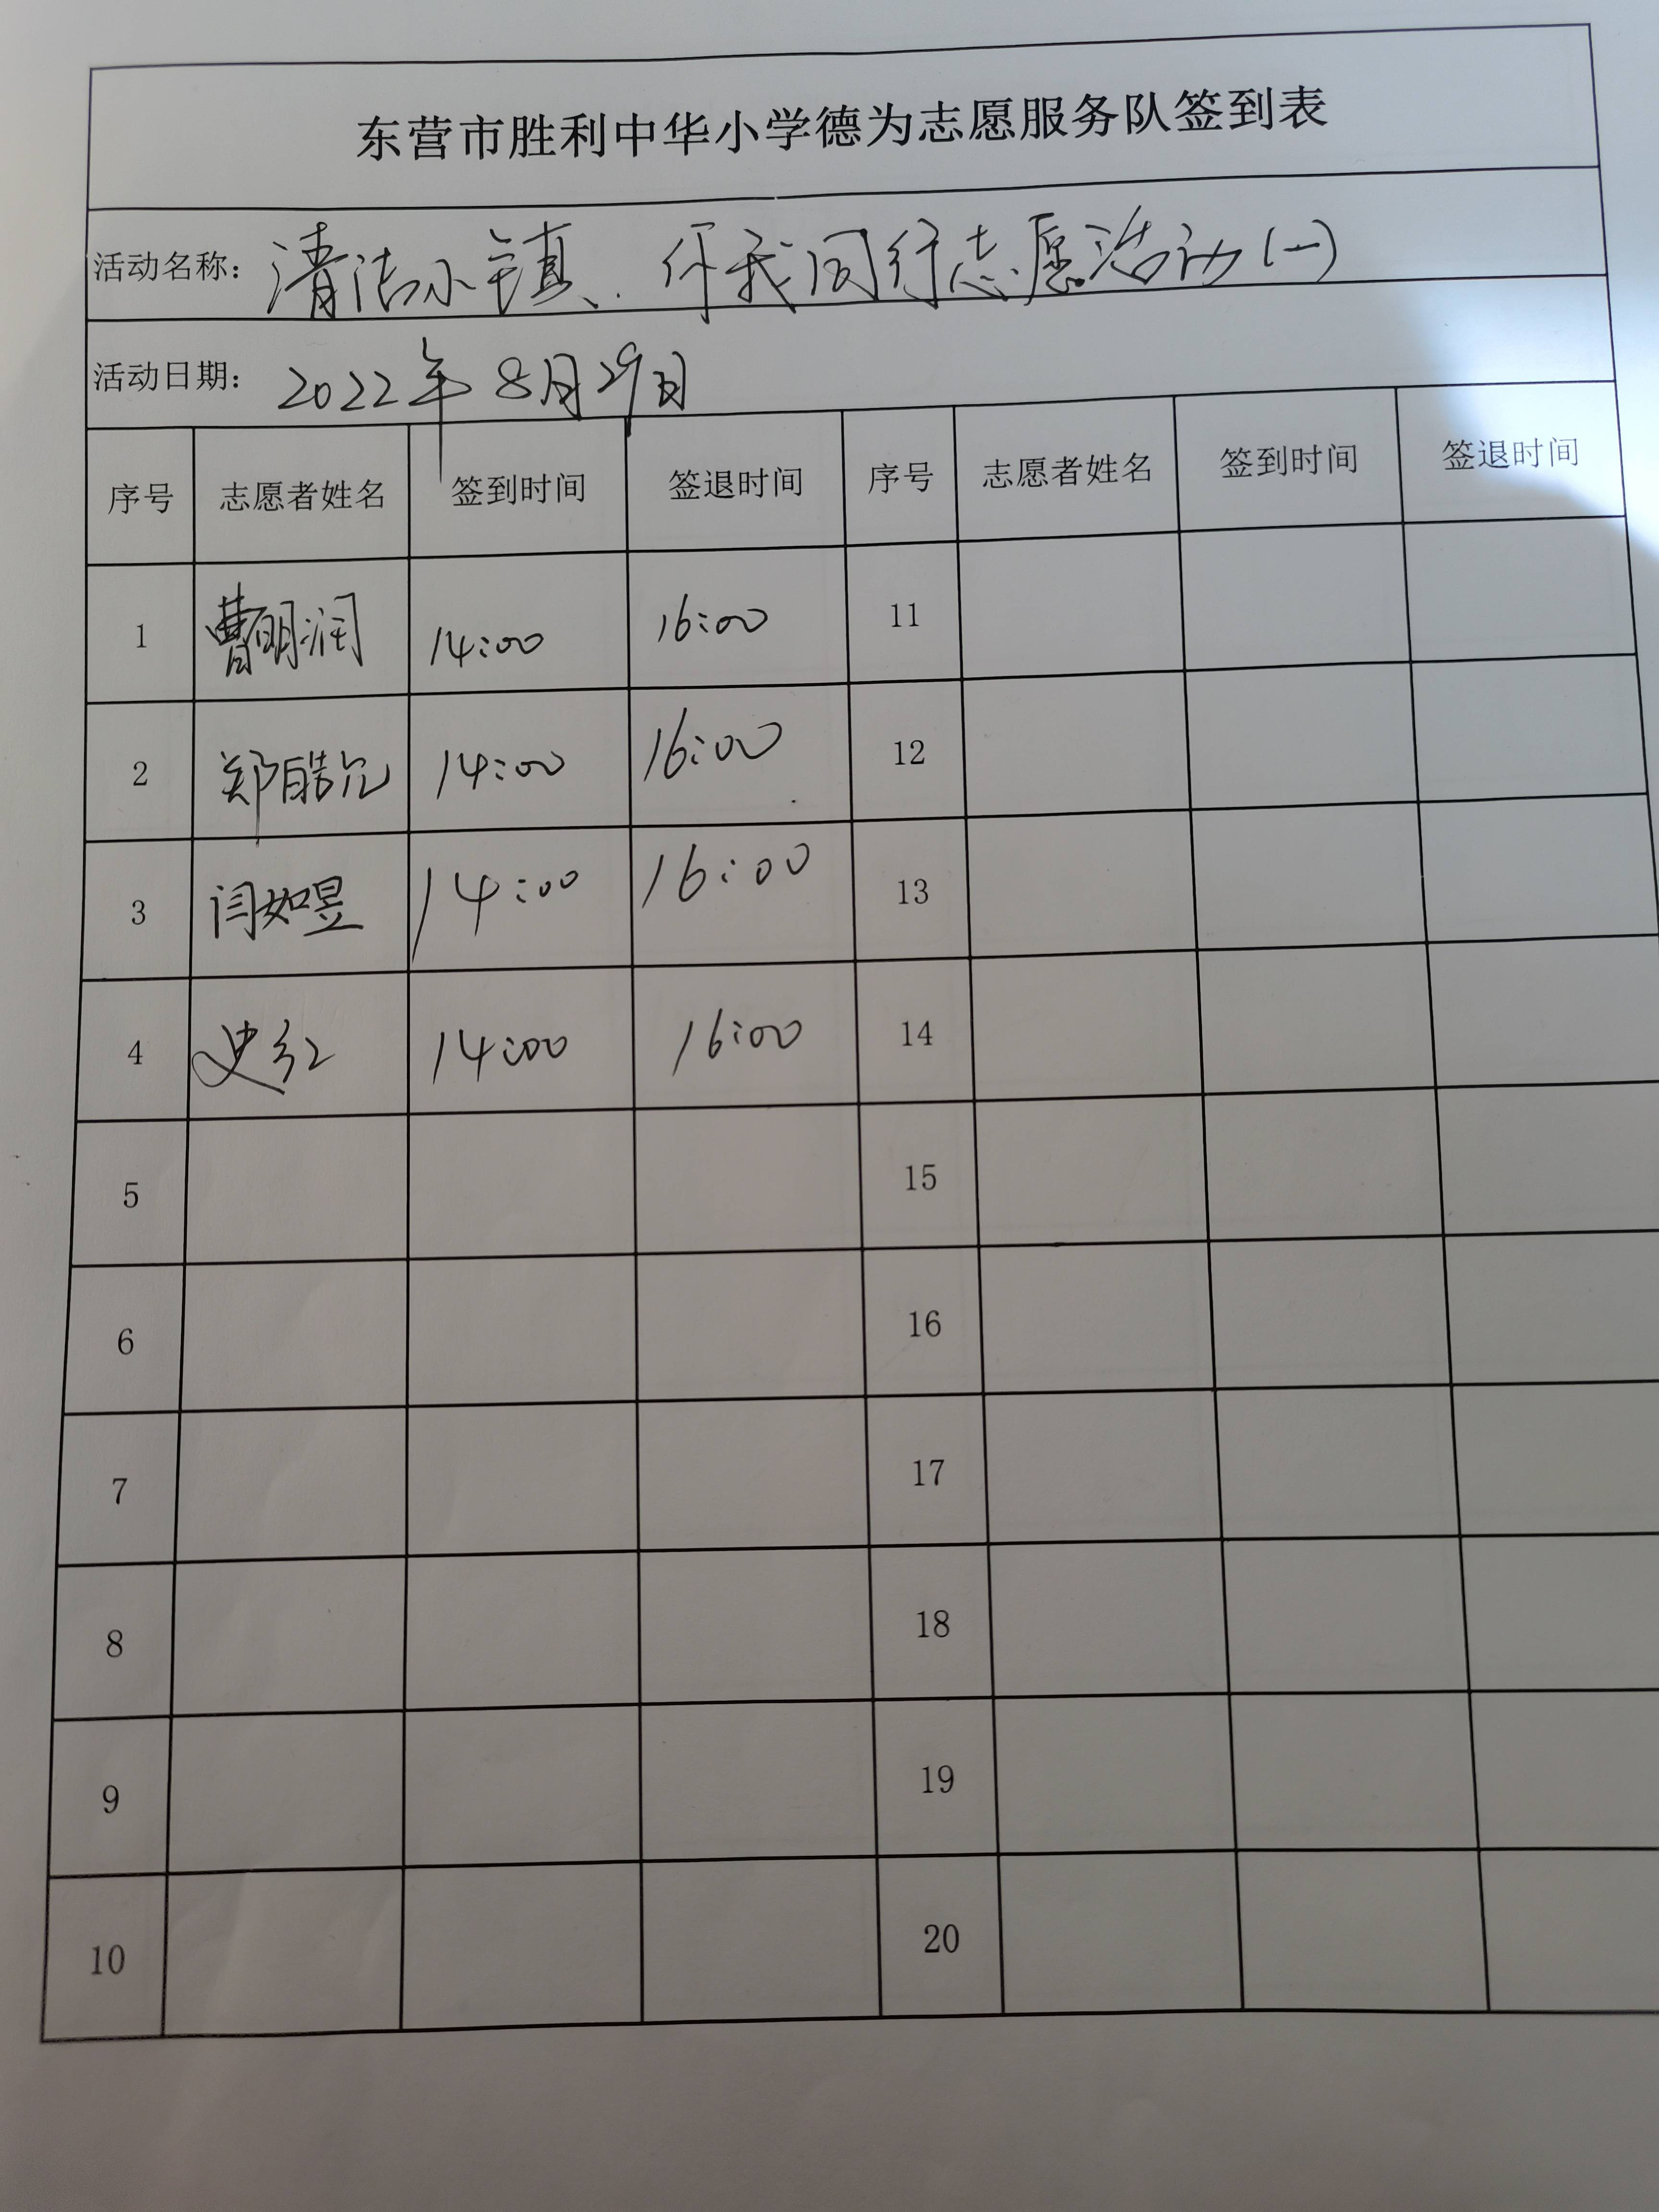 东营市胜利中华小学德为志愿服务队签到表
活动名称：清洁小镇、你我同行志愿活动(一)
活动日期：2022年8月29日
序号 志愿者姓名 签到时间 签退时间 序号 志愿者姓名 签到时间 签退时间
1 曹明润 14:00 16:00 11
2 郑皓允 14:00 16:00 12
3 闫如昱 14:00 16:00 13
4 史红 14:00 16:00 14
5 15
6 16
7 17
8 18
9 19
10 20